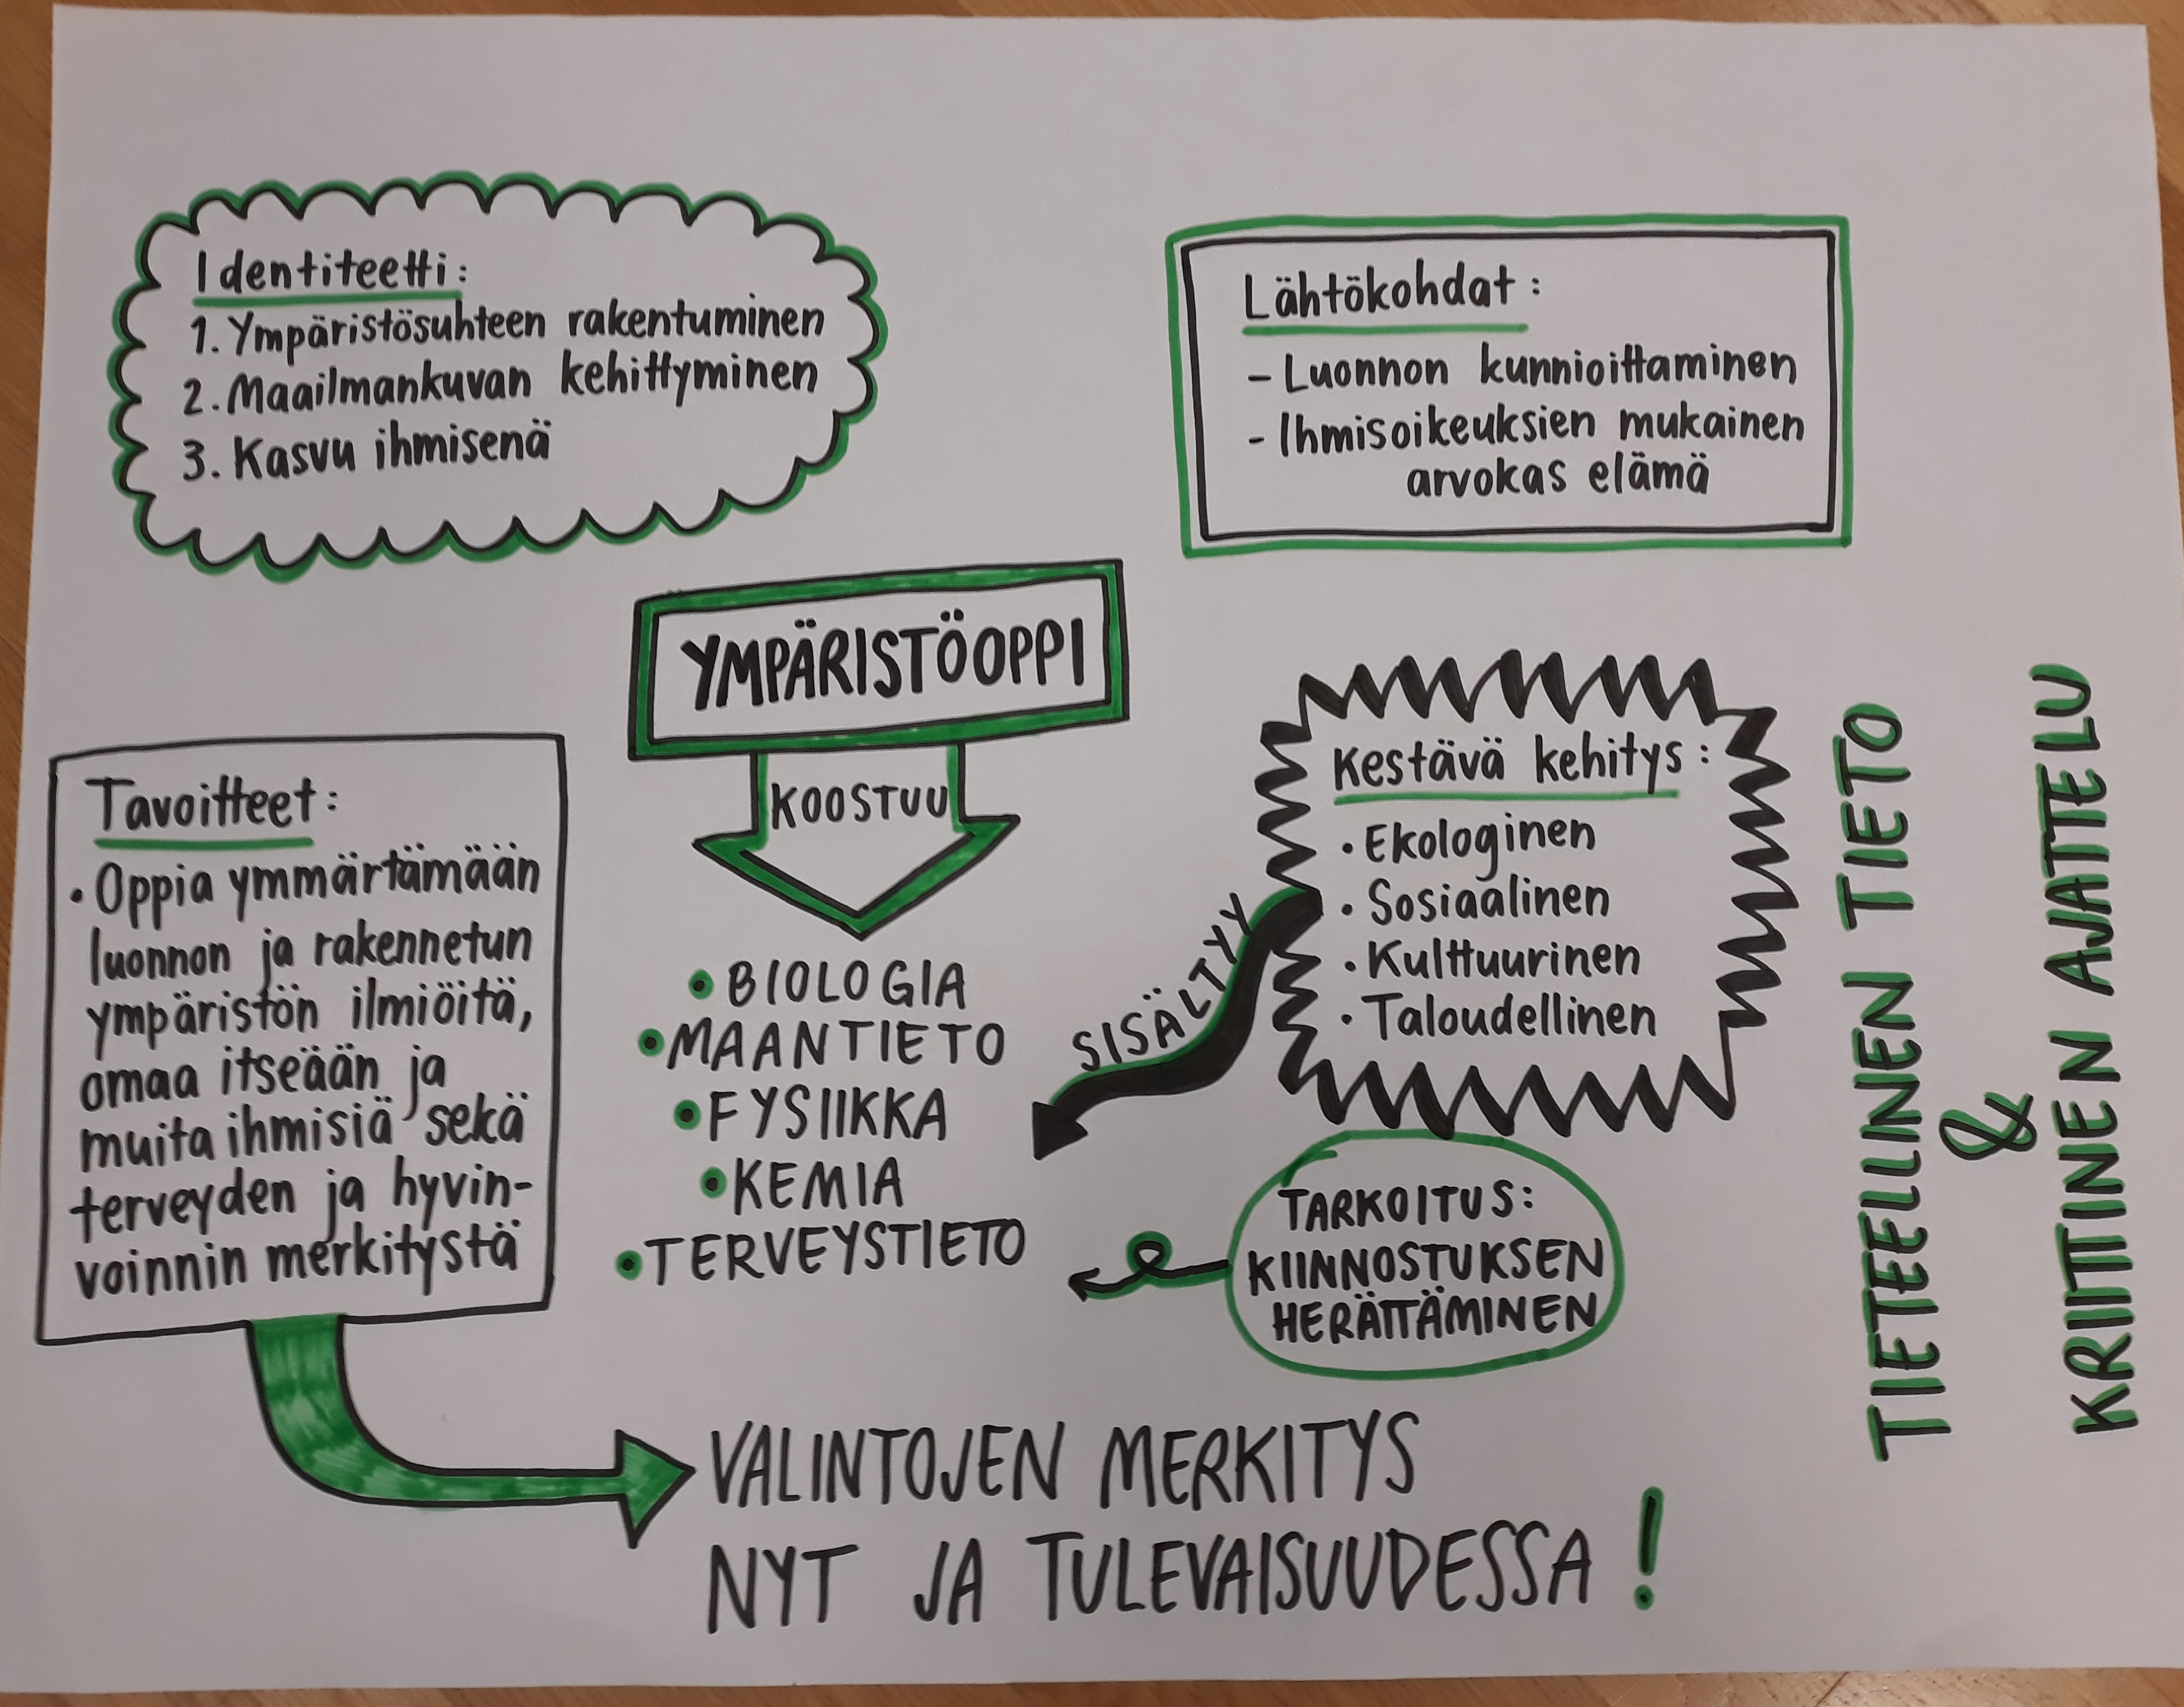 Identiteetti:
1. Ympäristösuhteen rakentuminen
2. Maailmankuvan kehittyminen
3. Kasvu ihmisenä
Lähtökohdat:
- Luonnon kunnioittaminen
- Ihmisoikeuksien mukainen
arvokas elämä
YMPÄRISTÖOPPI
KOOSTUU
• BIOLOGIA
• MAANTIETO
• FYSIIKKA
• KEMIA
• TERVEYSTIETO
Tavoitteet:
• Oppia ymmärtämään
luonnon ja rakennetun
ympäristön ilmiöitä,
omaa itseään ja
muita ihmisiä sekä
terveyden ja hyvin-
voinnin merkitystä
Kestävä kehitys:
• Ekologinen
• Sosiaalinen
• Kulttuurinen
• Taloudellinen
SISÄLTYY
TARKOITUS:
KIINNOSTUKSEN
HERÄTTÄMINEN
VALINTOJEN MERKITYS
NYT JA TULEVAISUUDESSA!
TIETEELLINEN TIETO
&
KRIITTINEN AJATTELU